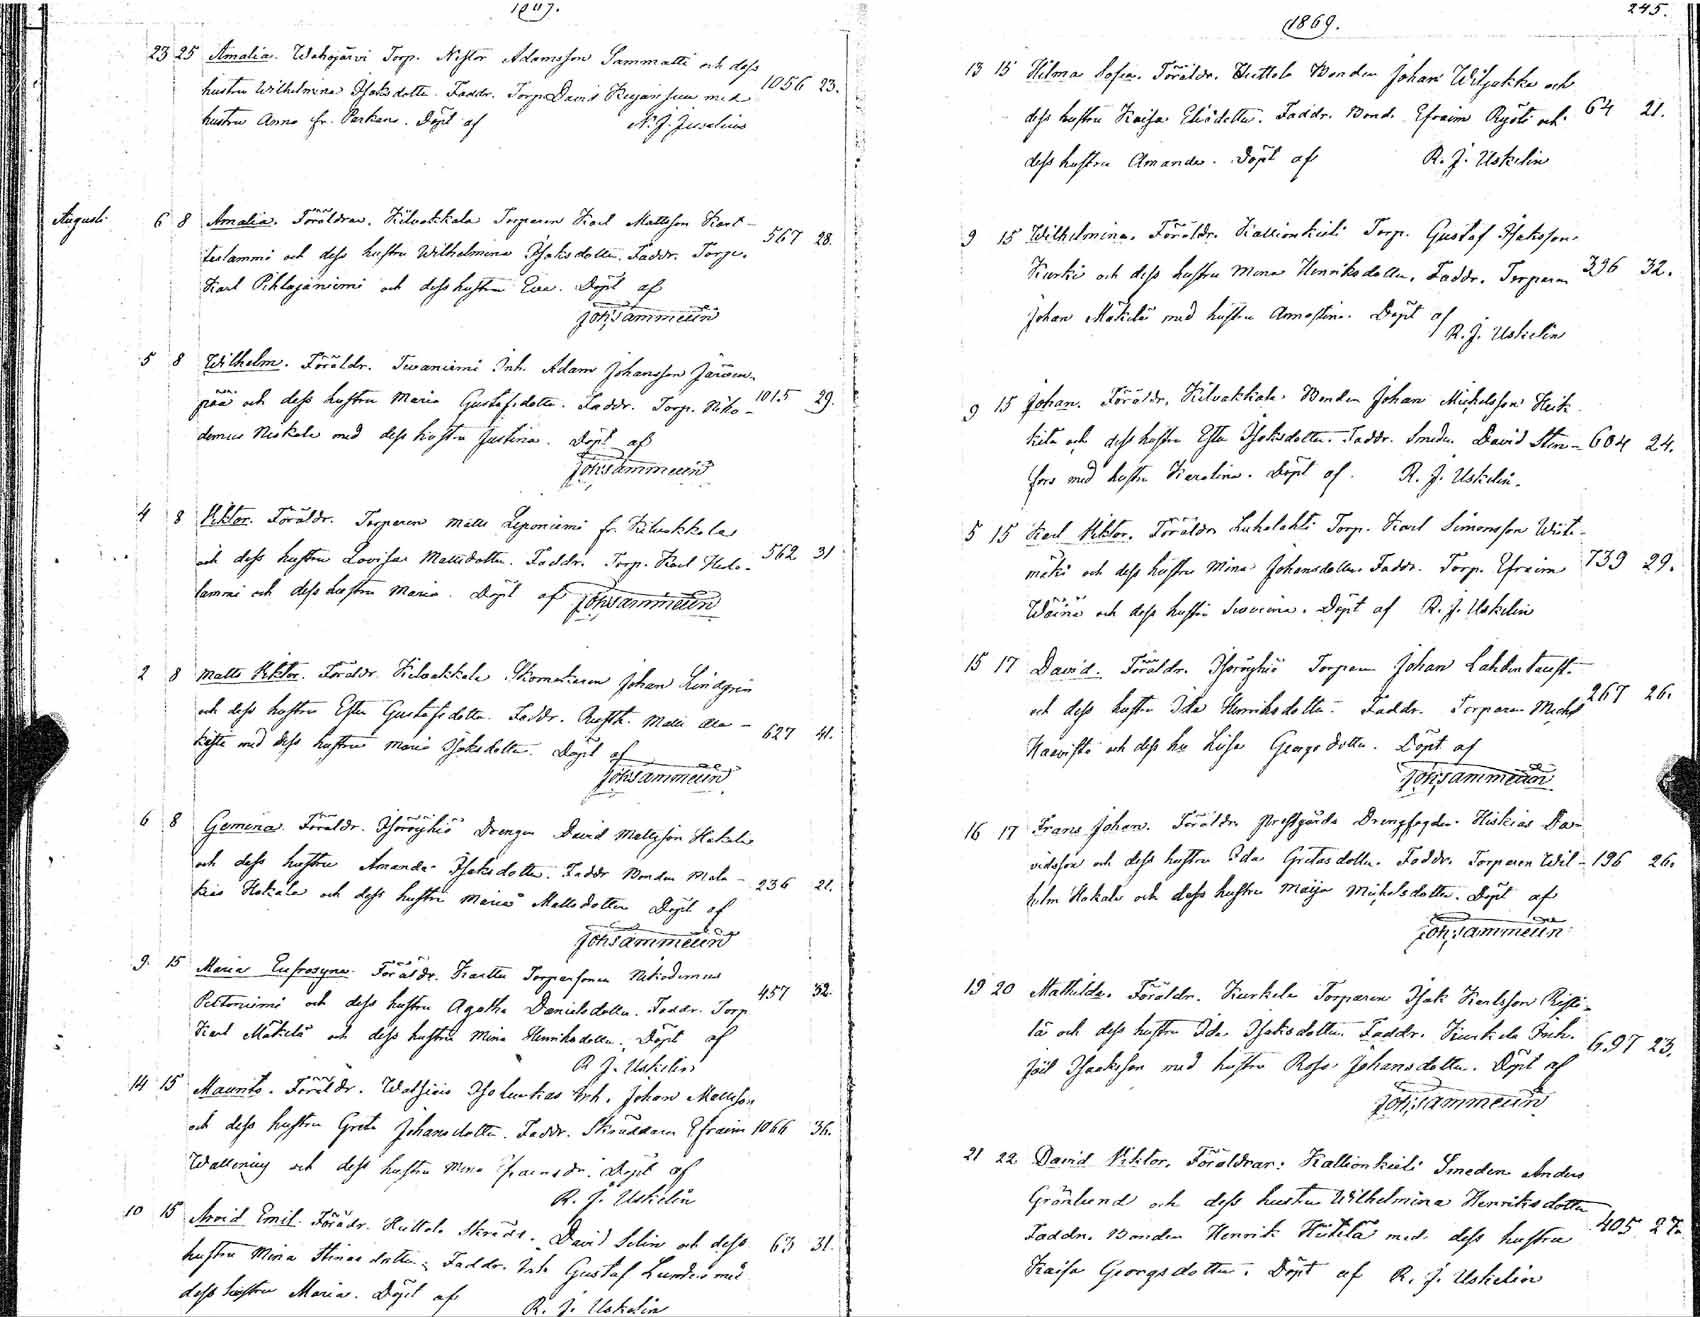 1869.
23 25 Amalia. Wahojärvi Torp. Nestor Adamsson Sammatti och dess
hustru Wilhelmina Isaksdotter. Faddr. Torp. David Kujansuu med 1056 23.
hustru Anna fr. Parkano. Döpt af N. J. Juselius
Augusti 6 8 Amalia. Föräldrar. Kilvakkala Torparen Karl Mattsson Kart-
teslammi och dess hustru Wilhelmina Isaksdotter. Faddr. Torp. 567 28.
Karl Pihlajaniemi och dess hustru Eva. Döpt af
Joh. Sammelin
5 8 Wilhelm. Föräldr. Tevaniemi Inh. Adam Johansson Järven-
pää och dess hustru Maria Gustafsdotter. Faddr. Torp. Niko- 1015 29.
demus Niskala med dess hustru Justina. Döpt af
Joh. Sammelin
4 8 Viktor. Föräldr. Torparen Matts Leponiemi fr. Kilvakkala
och dess hustru Lovisa Mattsdotter. Faddr. Torp. Karl 562 31
lammi och dess hustru Maria. Döpt af Joh. Sammelin
2 8 Matts Viktor. Föräldr. Kilvakkala Skomakaren Johan Lindgren
och dess hustru Ester Gustafsdotter. Faddr. Rusth. Matts Ala- 627 41.
med dess hustru Maria Isaksdotter. Döpt af
Joh. Sammelin
6 8 Gemina. Föräldr. Isoröyhiö Drengen David Mattsson Hakala
och dess hustru Amanda Isaksdotter. Faddr Bonden Mala- 236 21.
kias Hakala och dess hustru Maria Mattsdotter Döpt af
Joh. Sammelin
9. 15 Maria Eufrosyne. Föräldr. Kartu Torparsonen Nikodemus
Peltoniemi och dess hustru Agatha Danielsdotter. Faddr. Torp 457 32.
Karl Mäkelä och dess hustru Mina Henriksdotter. Döpt af
R. J. Uskelin
14 15 Maurits. Föräldr. Inh. Johan Mattsson
och dess hustru Greta Johansdotter. Faddr. Skräddaren Efraim 1066 36.
Wallenius och dess hustru Mina Döpt af
R. J. Uskelin
10 15 Arvid Emil. Föräldr. Huttola Skrädd. David Selin och dess 63 31.
hustru Mina Stinas dotter. Faddr. Inh Gustaf med
dess hustru Maria. Döpt af R. J. Uskelin
1869. 245.
13 15 Hilma Sofia. Föräldr. Huttola Bonden Johan Wiljakka och
dess hustru Kaisa Eliedotter. Faddr. Bond. Efraim Rysti och 64 21.
dess hustru Amanda. Döpt af R. J. Uskelin
9 15 Wilhelmina. Föräldr. Kallionkieli Torp. Gustaf Isaksson
Kurki och dess hustru Mina Henriksdotter. Faddr. Torparen 396 32.
Johan Mäkelä med hustru Annastina. Döpt af
R. J. Uskelin
9 15 Johan. Föräldr. Kilvakkala Bonden Johan Michelsson Heik-
kila och dess hustru Ester Isaksdotter. Faddr. Smeden David Sten- 604 24.
fors med hustru Karolina. Döpt af. R. J. Uskelin.
5 15 Karl Viktor. Föräldr Luhalahti Torp. Karl Simonsson
mäki och dess hustru Mina Johansdotter. Faddr. Torp. Efraim 739 29.
Wäinä och dess hustru Severina. Döpt af R. J. Uskelin
15 17 David. Föräldr. Isoröyhiö Torparen Johan Lahdentaust
och dess hustru Ida Henriksdotter. Faddr. Torparen Michel 267 26.
Kaavisto och dess hu Lisa Georgsdotter. Döpt af
Joh. Sammelin
16 17 Frans Johan. Föräldr. Prestgårds Drengfogden Hiskias Da-
vidsson och dess hustru Ida Gretasdotter. Faddr. Torparen Wil- 196 26.
helm Hakala och dess hustru Maija Michelsdotter. Döpt af
Joh. Sammelin
19 20 Mathilda. Föräldr. Kurkela Torparen Isak Karlsson Risti-
lä och dess hustru Ida Isaksdotter. Faddr. Kurkela Inh. 697 23.
Joel Isaksson med hustru Rosa Johansdotter. Döpt af
Joh. Sammelin
21 22 David Viktor. Föräldrar: Kallionkieli Smeden Anders
Grönlund och dess hustru Wilhelmina Henriksdotter
Faddr. Bonden Henrik Hietela med dess hustru 405 27.
Kaisa Georgsdotter. Döpt af R. J. Uskelin